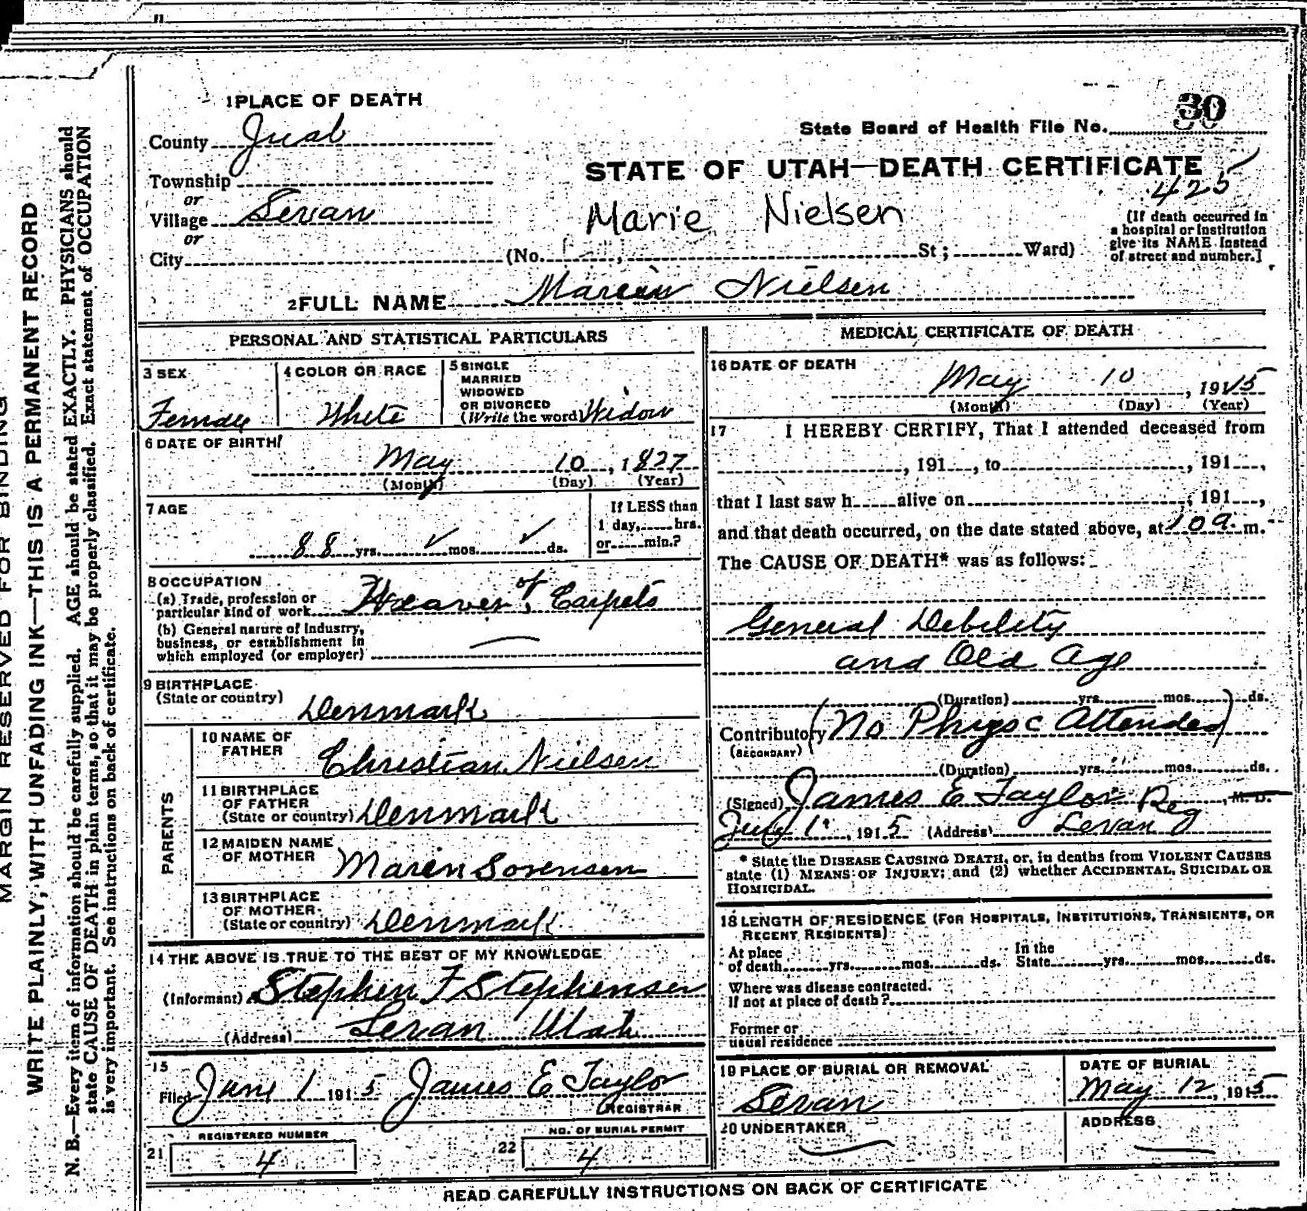 1 PLACE OF DEATH
County Juab
Township
or
Village Levan
or
City
State Board of Health File No. 30
STATE OF UTAH—DEATH CERTIFICATE
425
Marie Nielsen
(If death occurred in
a hospital or institution
give its NAME instead
of street and number.]
(No. , St; Ward)
2 FULL NAME Nielsen
PERSONAL AND STATISTICAL PARTICULARS
3 SEX
Female
4 COLOR OR RACE
White
5 SINGLE
MARRIED
WIDOWED
OR DIVORCED
(Write the word) Widow
6 DATE OF BIRTH
May 10, 1827
(Month) (Day) (Year)
7 AGE
88 yrs. ✓ mos. ✓ ds.
If LESS than
1 day, hrs.
or min.?
8 OCCUPATION
(a) Trade, profession or
particular kind of work Weaver of Carpets
(b) General nature of Industry,
business, or establishment in
which employed (or employer) —
9 BIRTHPLACE
(State or country) Denmark
PARENTS
10 NAME OF
FATHER Christian Nielsen
11 BIRTHPLACE
OF FATHER
(State or country) Denmark
12 MAIDEN NAME
OF MOTHER Maren Sorensen
13 BIRTHPLACE
OF MOTHER
(State or country) Denmark
14 THE ABOVE IS TRUE TO THE BEST OF MY KNOWLEDGE
(Informant) Stephen F Stephensen
(Address) Levan Utah
15
Filed June 1 1915 James E Taylor
REGISTRAR
REGISTERED NUMBER
21 4
NO. OF BURIAL PERMIT
22 4
MEDICAL CERTIFICATE OF DEATH
16 DATE OF DEATH
May 10, 1915
(Month) (Day) (Year)
17 I HEREBY CERTIFY, That I attended deceased from
, 191 , to , 191 ,
that I last saw h alive on , 191 ,
and that death occurred, on the date stated above, at 10 a. m.
The CAUSE OF DEATH* was as follows:
General Debility
and Old Age
(Duration) yrs. mos. ds.
Contributory (No Physc Attended)
(SECONDARY)
(Duration) yrs. mos. ds.
(Signed) James E Taylor Reg, M. D.
July 1, 1915 (Address) Levan
* State the DISEASE CAUSING DEATH, or, in deaths from VIOLENT CAUSES
state (1) MEANS OF INJURY; and (2) whether ACCIDENTAL, SUICIDAL OR
HOMICIDAL.
18 LENGTH OF RESIDENCE (FOR HOSPITALS, INSTITUTIONS, TRANSIENTS, OR
RECENT RESIDENTS)
At place
of death yrs. mos. ds.
In the
State yrs. mos. ds.
Where was disease contracted.
If not at place of death?
Former or
usual residence
19 PLACE OF BURIAL OR REMOVAL
Levan
DATE OF BURIAL
May 12, 1915
20 UNDERTAKER
ADDRESS
READ CAREFULLY INSTRUCTIONS ON BACK OF CERTIFICATE
MARGIN RESERVED FOR BINDING
WRITE PLAINLY, WITH UNFADING INK—THIS IS A PERMANENT RECORD
N. B.—Every item of information should be carefully supplied. AGE should be stated EXACTLY. PHYSICIANS should
state CAUSE OF DEATH in plain terms, so that it may be properly classified. Exact statement of OCCUPATION
is very important. See instructions on back of certificate.